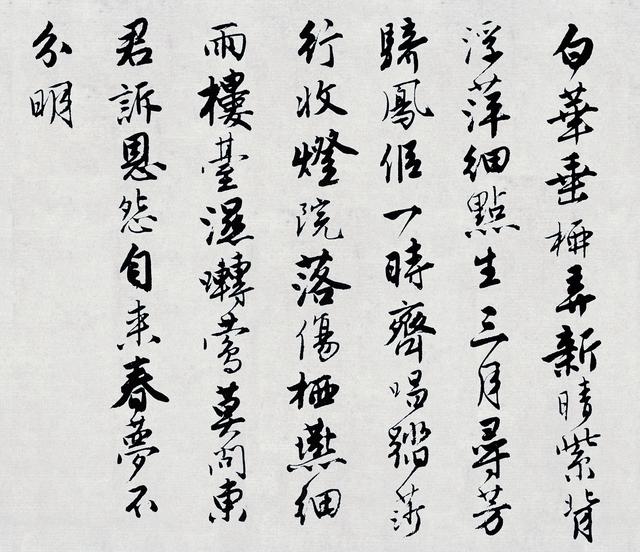 白華垂柵弄新晴紫背
浮萍細點生三月尋芳
騎鳳侶一時齊唱踏莎
行收燈院落傷栖燕細
雨樓臺濕囀鶯莫問東
君訴恩怨自来春夢不
分明